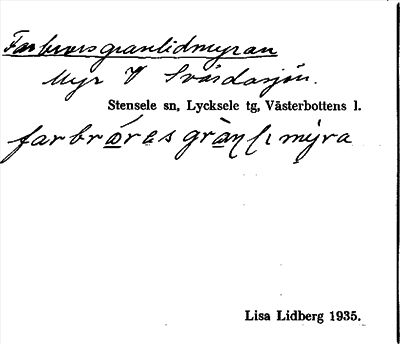 Farbrorsgranlidmyran
Myr V Svärdasjön.
Stensele sn, Lycksele tg, Västerbottens l.
farbrøras gràn̥l̥ı mýra
Lisa Lidberg 1935.